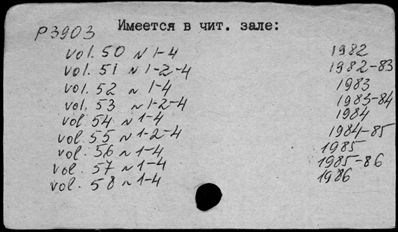 P3903 Имеется в чит. зале:
vol. 50 N 1-4 1982
vol. 51 N 1-2-4 1982-83
vol. 52 N 1-4 1983
vol. 53 N 1-2-4 1983-84
vol 54 N 1-4 1984
vol. 55 N 1-2-4 1984-85
vol. 56 N 1-4 1985
vol. 57 N 1-4 1985-86
vol. 58 N 1-4 1986